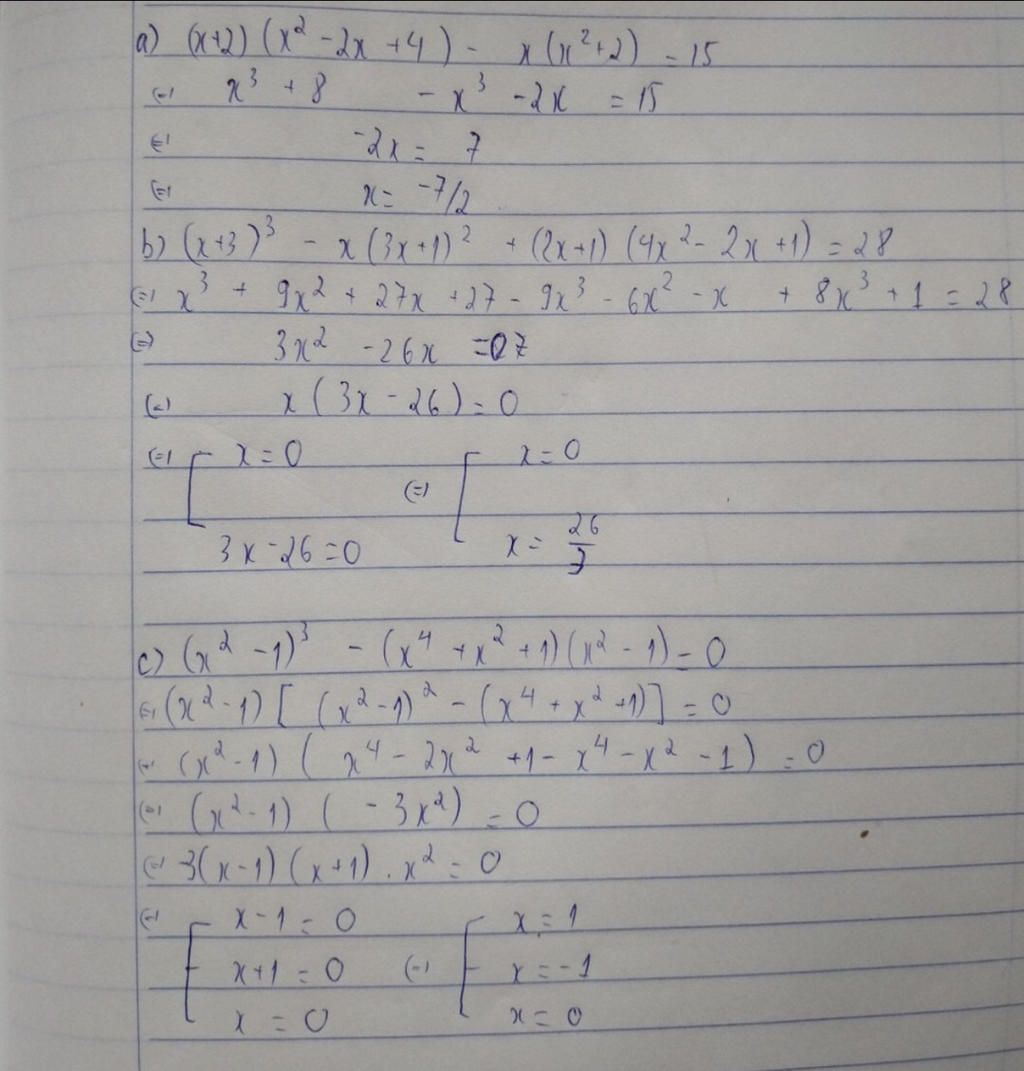 a) (x+2) (x² - 2x + 4) - x(x²+2) = 15
(=) x³ + 8 - x³ - 2x = 15
(=) -2x = 7
(=) x = -7/2
b) (x+3)³ - x(3x+1)² + (2x+1) (4x² - 2x + 1) = 28
(=) x³ + 9x² + 27x + 27 - 9x³ - 6x² - x + 8x³ + 1 = 28
(=) 3x² - 26x = 0
(=) x(3x - 26) = 0
(=) [ x = 0 (=) [ x = 0
3x - 26 = 0 x = 26/3
c) (x² - 1)³ - (x⁴ + x² + 1)(x² - 1) = 0
(=) (x² - 1) [ (x² - 1)² - (x⁴ + x² + 1)] = 0
(=) (x² - 1) ( x⁴ - 2x² + 1 - x⁴ - x² - 1) = 0
(=) (x² - 1) ( - 3x²) = 0
(=) 3(x - 1) (x + 1) . x² = 0
(=) [ x - 1 = 0 [ x = 1
x + 1 = 0 (=) x = -1
x = 0 x = 0